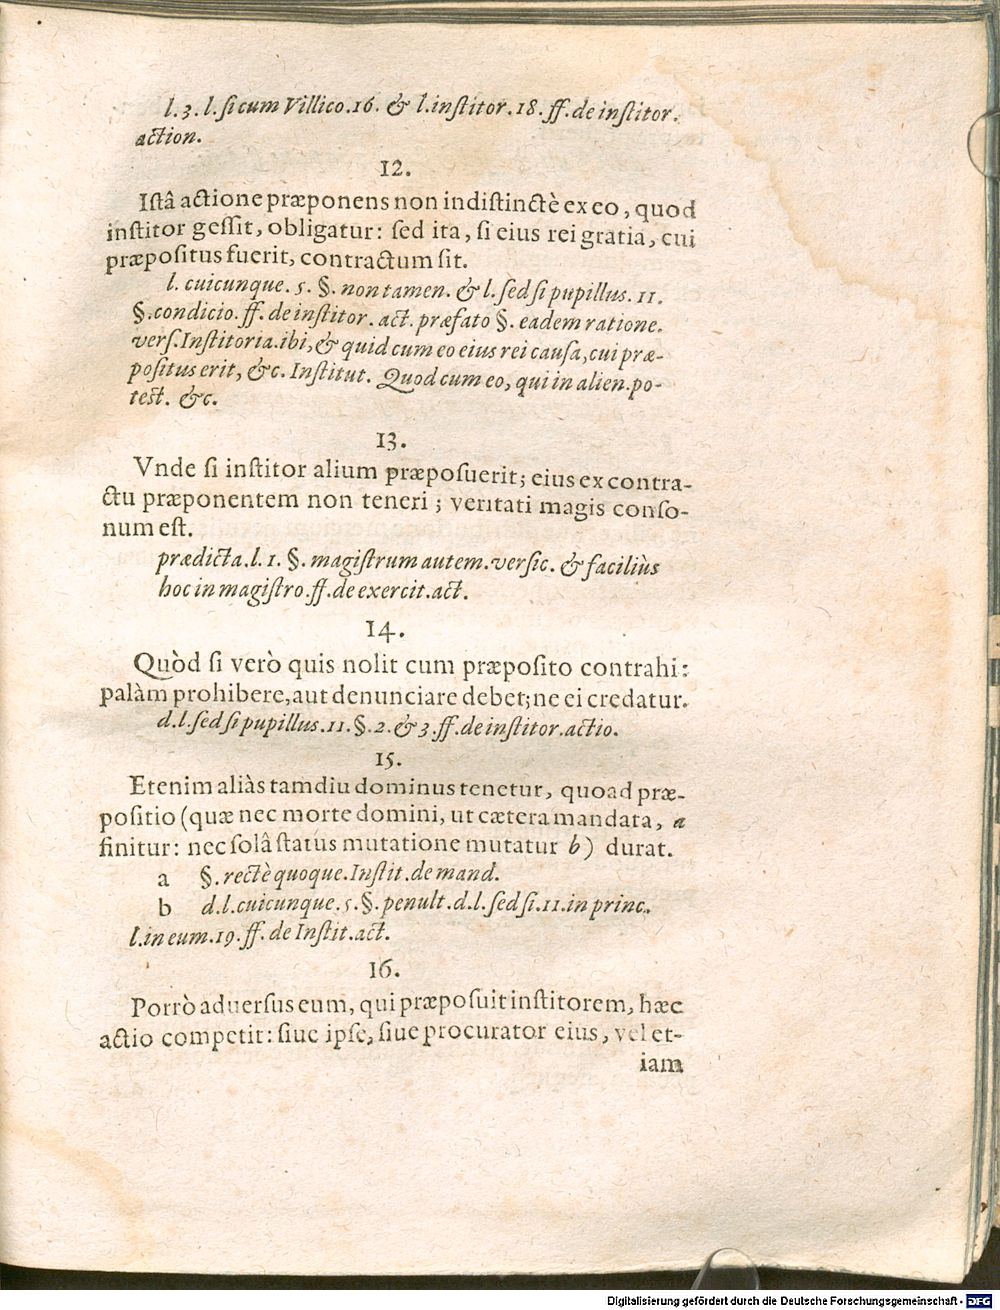 l. 3. l. si cum Villico. 16. & l. institor. 18. ff. de institor.
action.
12.
Istâ actione præponens non indistinctè ex eo, quod
institor gessit, obligatur: sed ita, si eius rei gratia, cui
præpositus fuerit, contractum sit.
l. cuicunque. 5. §. non tamen. & l. sed si pupillus. 11.
§. condicio. ff. de institor. act. præfato §. eadem ratione.
vers. Institoria. ibi, & quid cum eo eius rei causa, cui præ-
positus erit, &c. Institut. Quod cum eo, qui in alien. po-
test. &c.
13.
Vnde si institor alium præposuerit; eius ex contra-
ctu præponentem non teneri; veritati magis conso-
num est.
prædicta. l. 1. §. magistrum autem. versic. & faciliùs
hoc in magistro. ff. de exercit. act.
14.
Quòd si verò quis nolit cum præposito contrahi:
palàm prohibere, aut denunciare debet; ne ei credatur.
d. l. sed si pupillus. 11. §. 2. & 3. ff. de institor. actio.
15.
Etenim aliàs tamdiu dominus tenetur, quoad præ-
positio (quæ nec morte domini, ut cætera mandata, a
finitur: nec solâ status mutatione mutatur b) durat.
a §. rectè quoque. Instit. de mand.
b d. l. cuicunque. 5. §. penult. d. l. sed si. 11. in princ.
l. in eum. 19. ff. de Instit. act.
16.
Porrò aduersus eum, qui præposuit institorem, hæc
actio competit: siue ipse, siue procurator eius, vel et-
iam
Digitalisierung gefördert durch die Deutsche Forschungsgemeinschaft - DFG